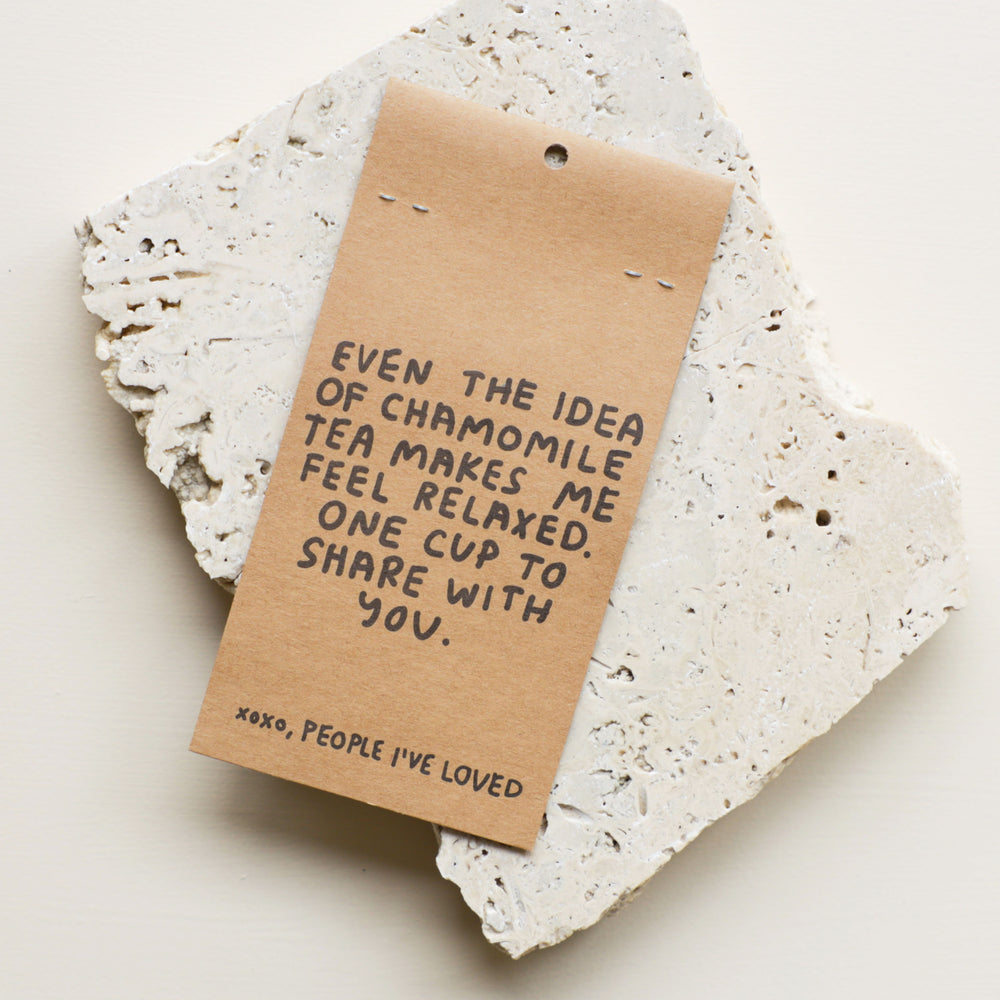 EVEN THE IDEA
OF CHAMOMILE
TEA MAKES ME
FEEL RELAXED.
ONE CUP TO
SHARE WITH
YOU.
xoxo, PEOPLE I'VE LOVED